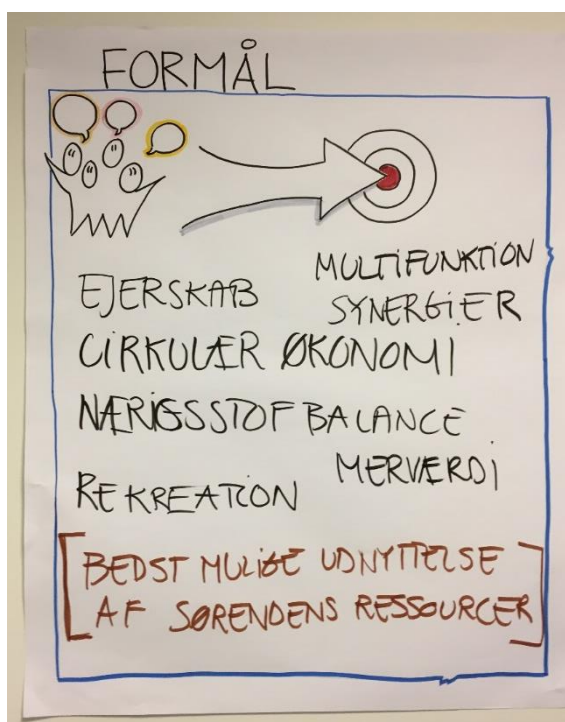 FORMÅL
MULTIFUNKTION
EJERSKAB
SYNERGIER
CIRKULÆR ØKONOMI
NÆRIGSSTOF BALANCE
MERVÆRDI
REKREATION
[BEDST MULIGE UDNYTTELSE
AF SØRENDENS RESSOURCER]